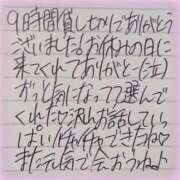 9時間貸しきりでありがとう
ございました!お休みの日に
来てくれてありがとー(立)
ずっと気になってて選んで
くれた♡沢山お話してい
ぱいイチャイチャできたね♡
また元気で会おうねっ♪